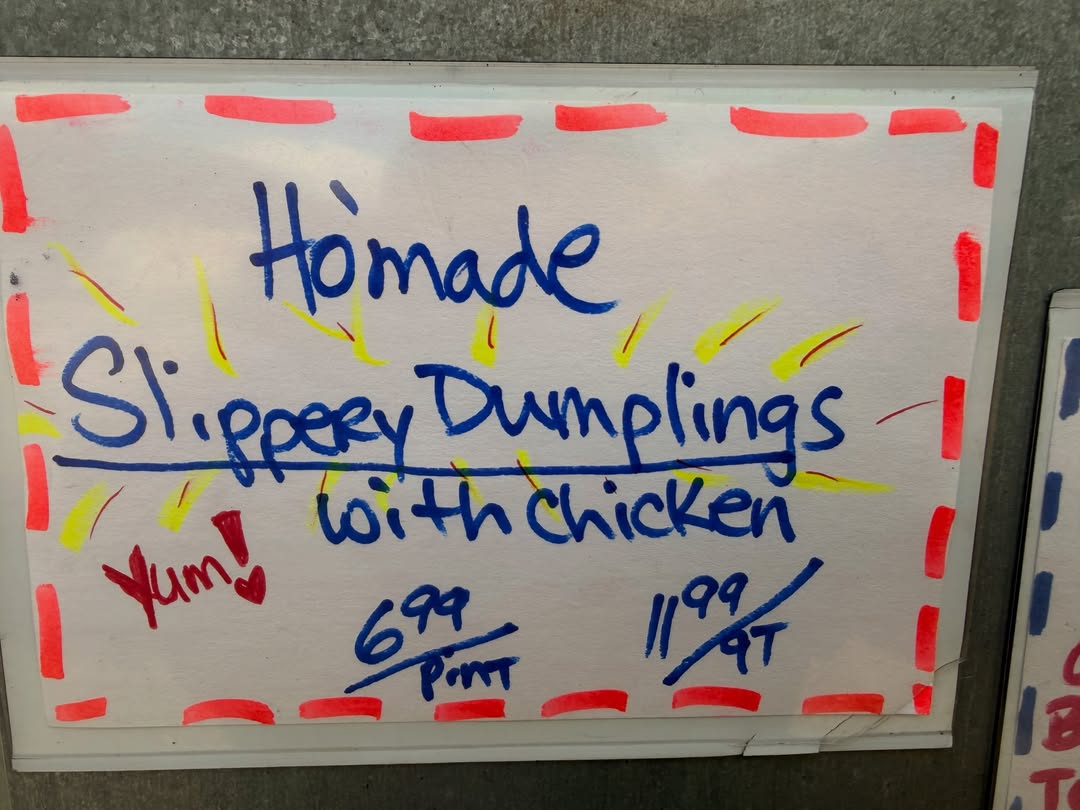 Hòmade
Slippery Dumplings
with chicken
Yum!
6 99/pint
11 99/qT